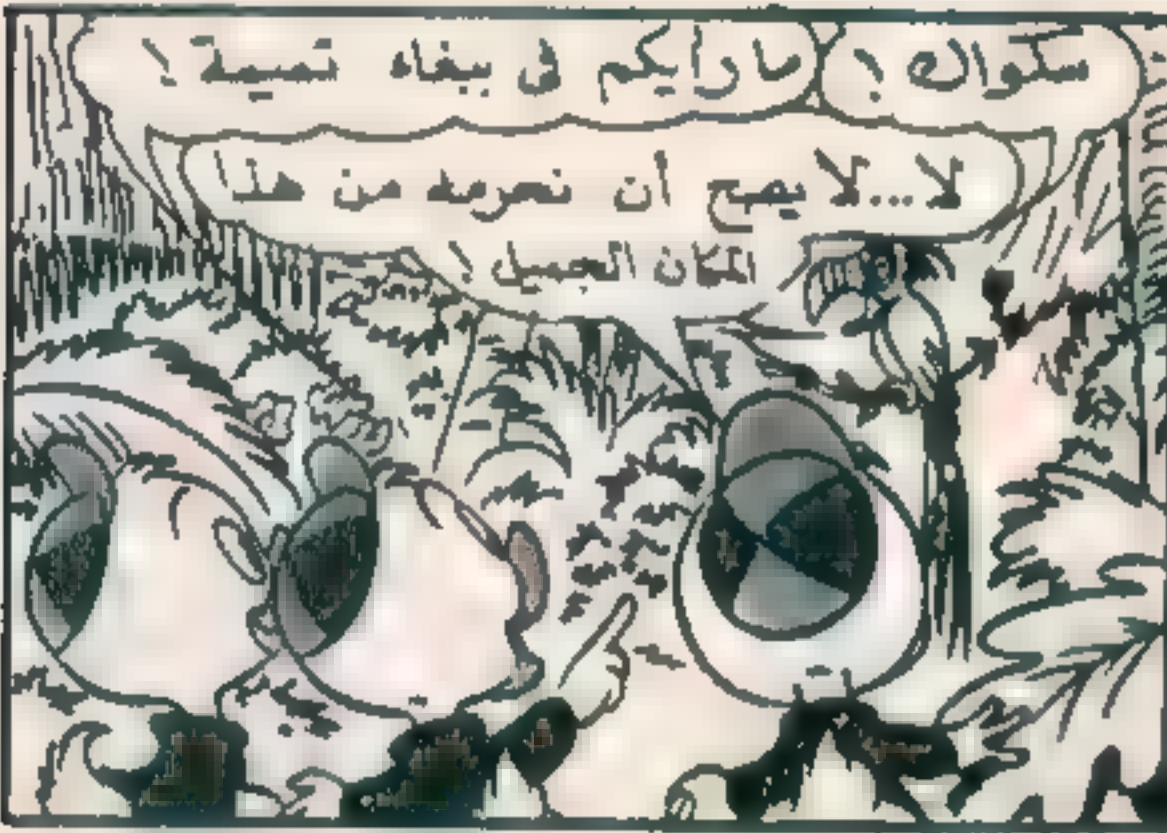 سكواك !
ما رأيكم فى ببغاء ثمينة !
لا...لا يصح أن نحرمه من هذا
المكان الجميل !